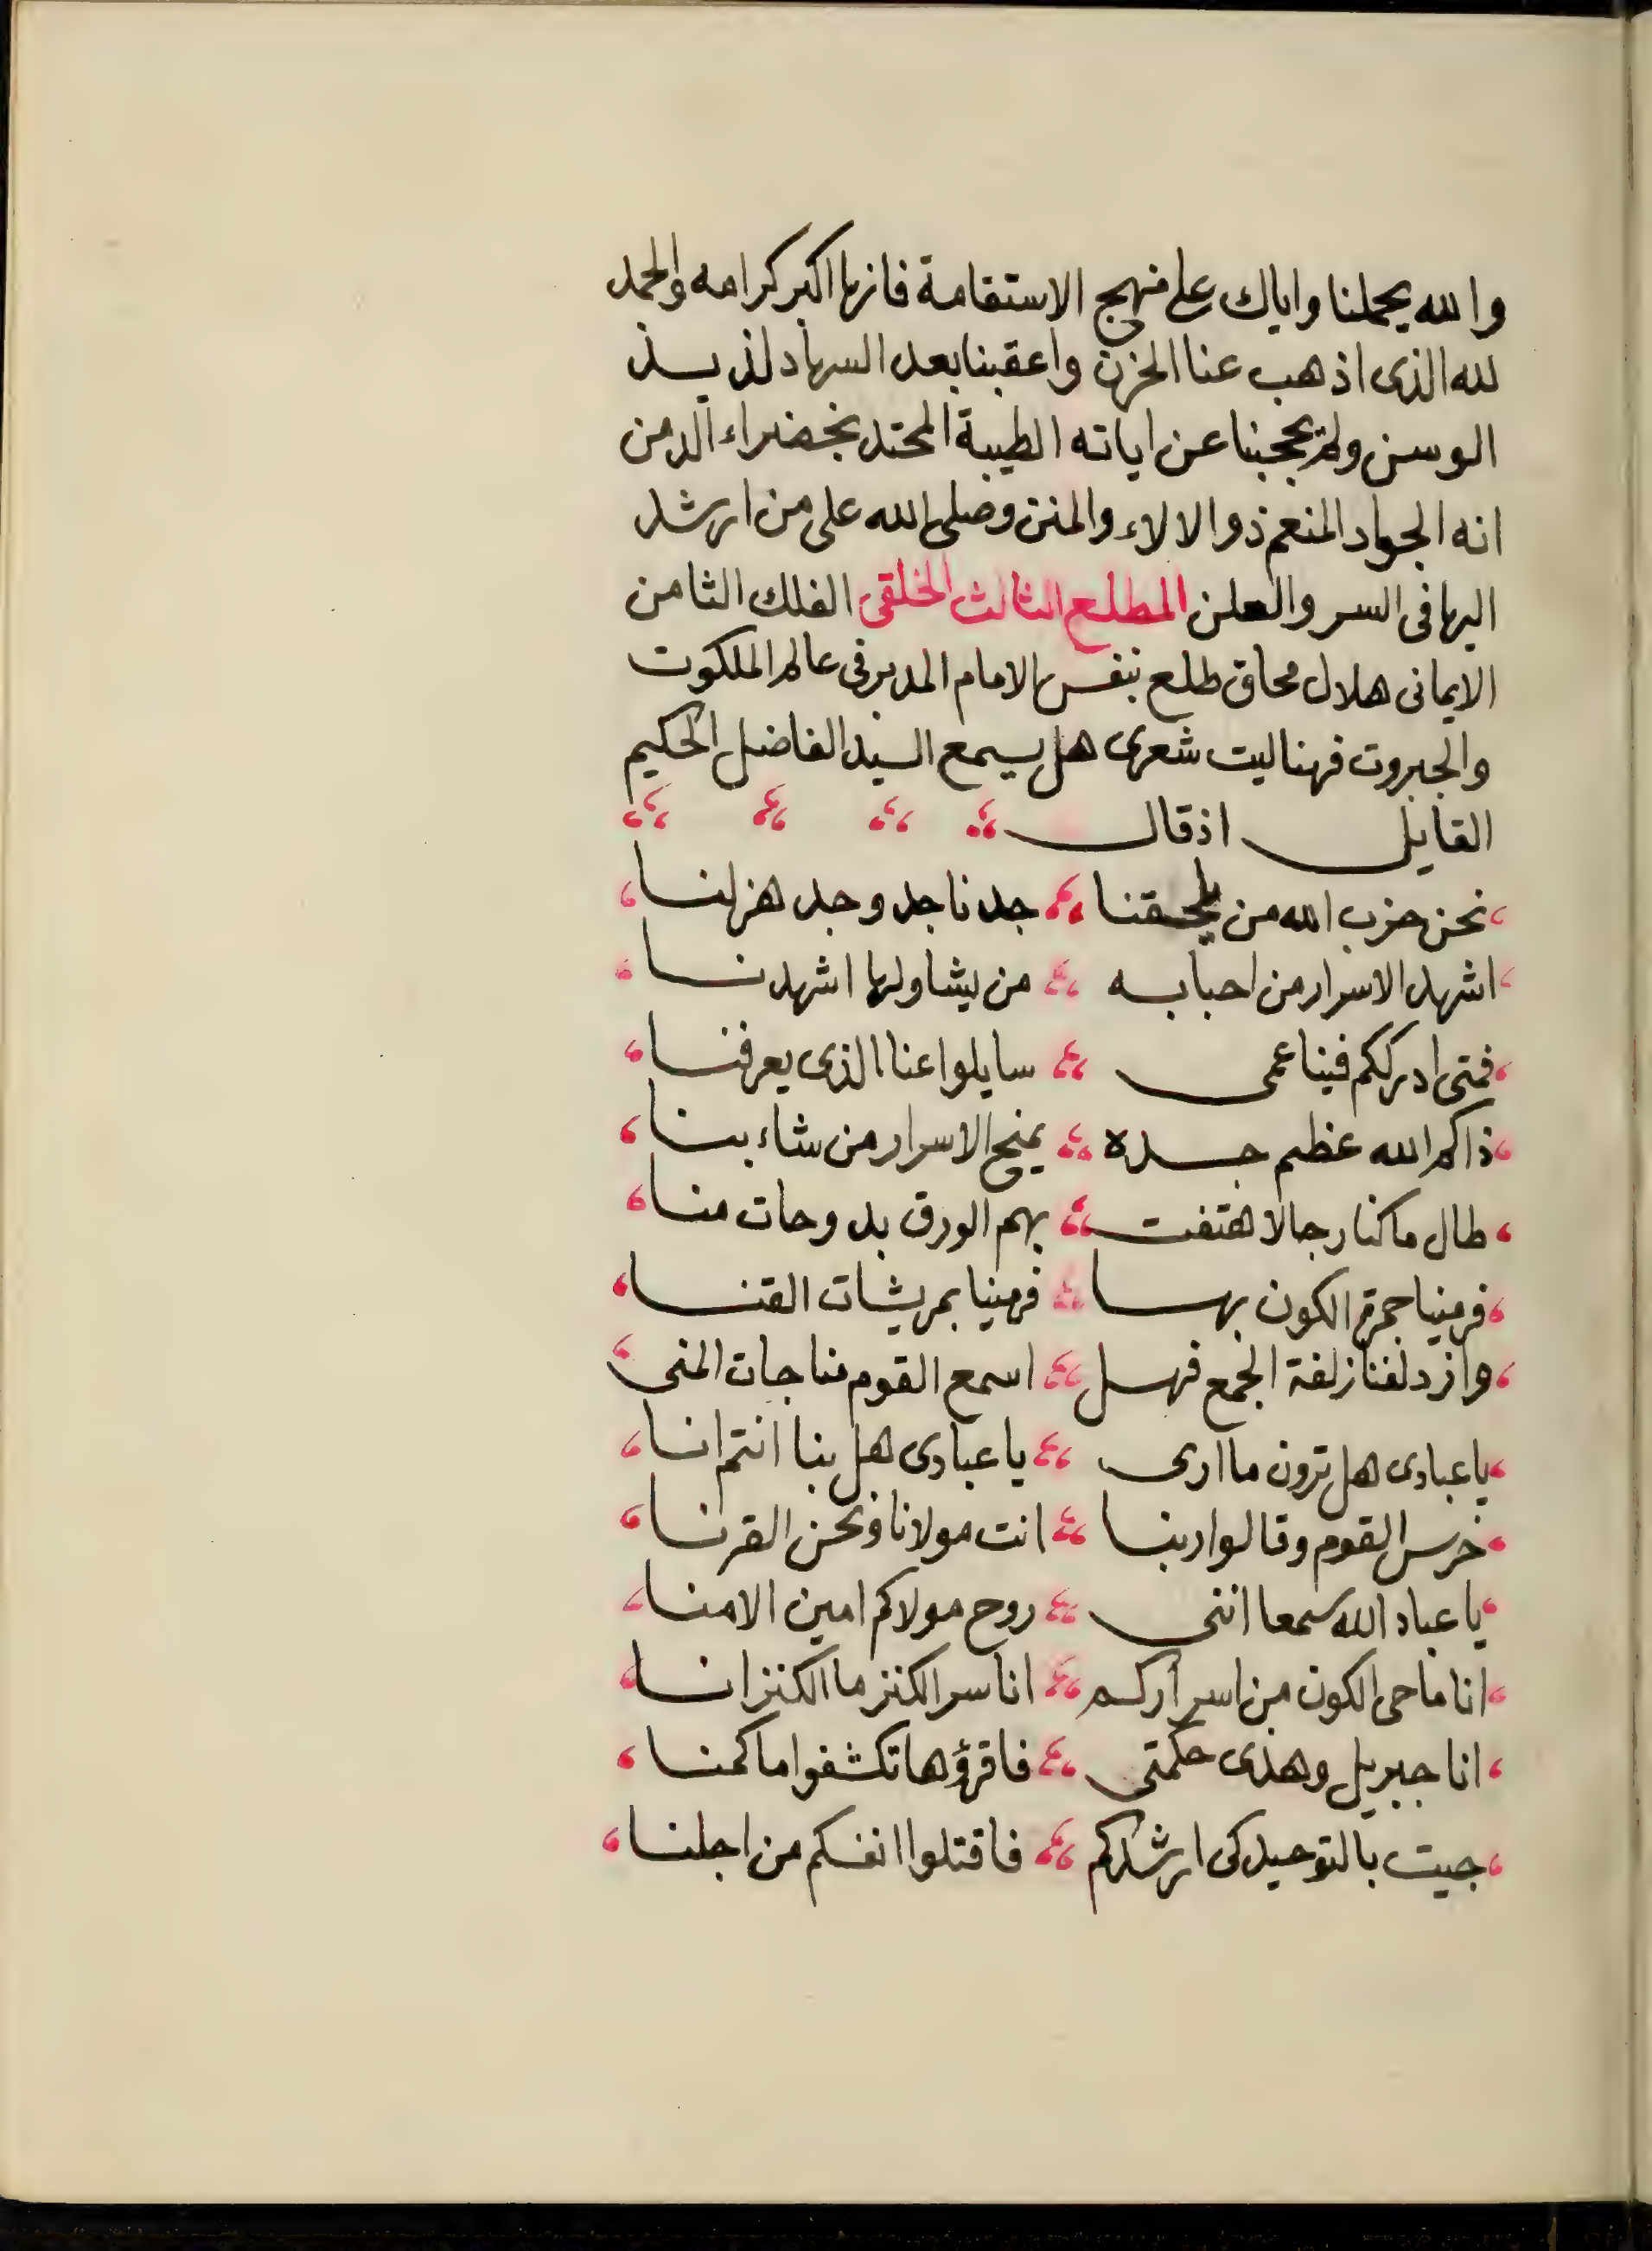 والله يحملنا واياك على منهج الاستقامة فانها اكبر كرامه والحمد
لله الذى اذهب عنا الحزن واعقبنا بعد السهاد لذيذ
الوسن ولم يحجبنا عن اياته الطيبة المحتد بخضراء الدمن
انه الجواد المنعم ذو الالاء والمنن وصلى الله على من ارشد
اليها فى السر والعلن المطلع الثالث الخلقى الفلك الثامن
الايمانى هلال محاق طلع بنفس الامام المدبر فى عالم الملكوت
والجبروت فهنا ليت شعرى هل يسمع السيد الفاضل الحكيم
القايل اذ قال
نحن حزب الله من يلحقنا جدنا جد وجد هزلنا
اشهد الاسرار من احبابه من يشا ولها اشهدنا
فمتى ادرككم فينا عمى سايلوا عنا الذى يعرفنا
ذاكم الله عظيم جده يمنح الاسرار من شاء بنا
طال ما كنا رجالا هتفت بهم الورق بدوحات منا
فرمينا جمرة الكون بها فرمينا بمريشات القنا
وازدلفنا زلفة الجمع فهل اسمع القوم مناجات المنى
ياعبادى هل ترون ما ارى ياعبادى هل بنا انتم انا
خرس القوم وقالوا ربنا انت مولانا ونحن القرنا
ياعباد الله سمعا اننى روح مولاكم امين الامنا
انا ماحى الكون من اسراركم انا سر الكنز ما الكنز انا
انا جبريل وهذى حكمتى فاقرؤها تكشفوا ما كمنا
جيت بالتوحيد كى ارشدكم فاقتلوا انفسكم من اجلنا